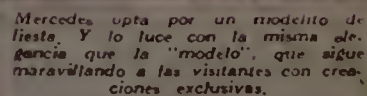 Mercedes opta por un modelito de
fiesta. Y lo luce con la misma ele-
gancia que la "modelo", que sigue
maravillando a las visitantes con crea-
ciones exclusivas.